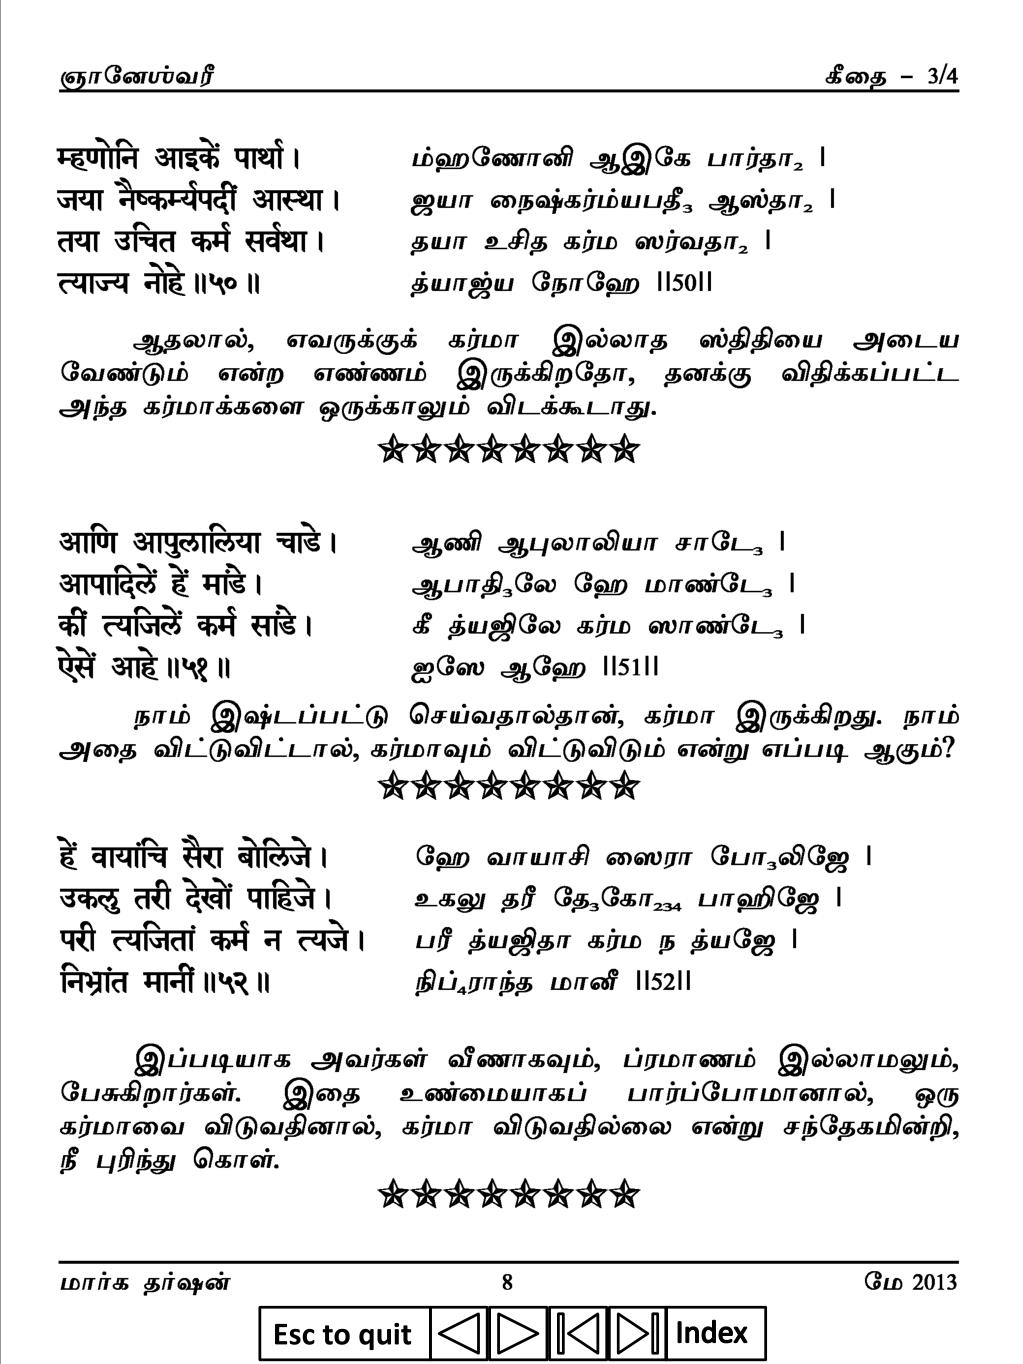 ஞானேஶ்வரீ கீதை – 3/4
म्हणोनि आइकें पार्था। ம்ஹணோனி ஆஇகே பார்தா₂ |
जया नैष्कर्म्यपदीं आस्था। ஜயா நைஷ்கர்ம்யபதீ₃ ஆஸ்தா₂ |
तया उचित कर्म सर्वथा। தயா உசித கர்ம ஸர்வதா₂ |
त्याज्य नोहे॥५०॥ த்யாஜ்ய நோஹே ||50||
ஆதலால், எவருக்குக் கர்மா இல்லாத ஸ்திதியை அடைய
வேண்டும் என்ற எண்ணம் இருக்கிறதோ, தனக்கு விதிக்கப்பட்ட
அந்த கர்மாக்களை ஒருக்காலும் விடக்கூடாது.
आणि आपुलालिया चाडे। ஆணி ஆபுலாலியா சாடே₃ |
आपादिलें हें मांडे। ஆபாதி₃லே ஹே மாண்டே₃ |
कीं त्यजिलें कर्म सांडे। கீ த்யஜிலே கர்ம ஸாண்டே₃ |
ऐसें आहे॥५१॥ ஐஸே ஆஹே ||51||
நாம் இஷ்டப்பட்டு செய்வதால்தான், கர்மா இருக்கிறது. நாம்
அதை விட்டுவிட்டால், கர்மாவும் விட்டுவிடும் என்று எப்படி ஆகும்?
हें वायांचि सैरा बोलिजे। ஹே வாயாசி ஸைரா போ₃லிஜே |
उकलु तरी देखों पाहिजे। உகலு தரீ தே₃கோ₂₃₄ பாஹிஜே |
परी त्यजितां कर्म न त्यजे। பரீ த்யஜிதா கர்ம ந த்யஜே |
निभ्रांत मानीं॥५२॥ நிப்₄ராந்த மானீ ||52||
இப்படியாக அவர்கள் வீணாகவும், ப்ரமாணம் இல்லாமலும்,
பேசுகிறார்கள். இதை உண்மையாகப் பார்ப்போமானால், ஒரு
கர்மாவை விடுவதினால், கர்மா விடுவதில்லை என்று சந்தேகமின்றி,
நீ புரிந்து கொள்.
மார்க தர்ஷன் 8 மே 2013
Esc to quit Index